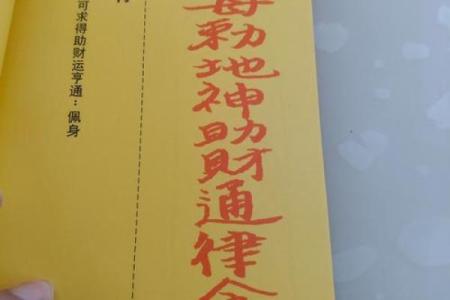 勅地神助財通律
可求得助财运亨通：佩身